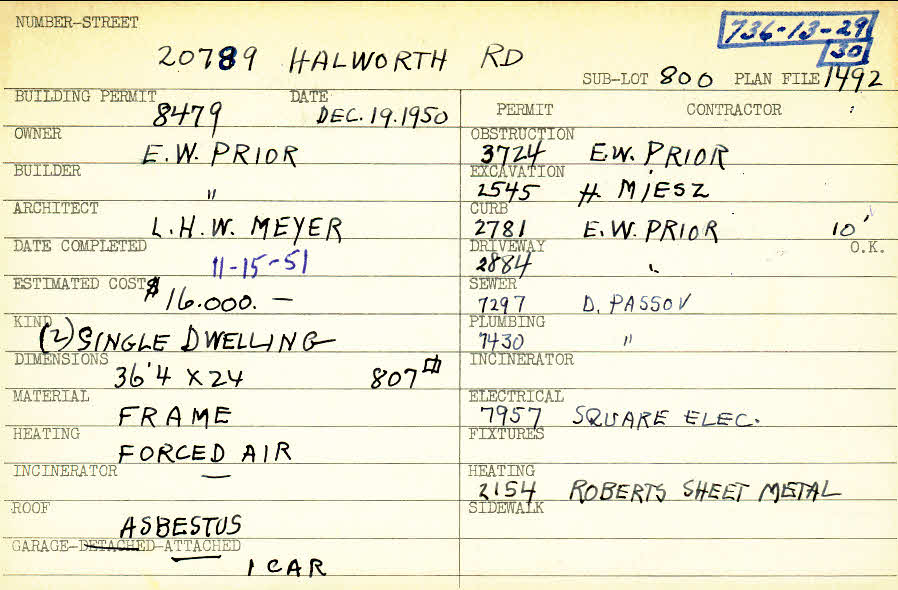 NUMBER-STREET
736-13-29
30
20789 HALWORTH RD
SUB-LOT 800 PLAN FILE 1492
BUILDING PERMIT DATE
8479 DEC. 19. 1950
OWNER
E.W. PRIOR
BUILDER
"
ARCHITECT
L.H.W. MEYER
DATE COMPLETED
11-15-51
ESTIMATED COST $
16.000. —
KIND
(2) SINGLE DWELLING
DIMENSIONS
36'4 X 24 807
MATERIAL
FRAME
HEATING
FORCED AIR
INCINERATOR
—
ROOF
ASBESTUS
GARAGE-DETACHED-ATTACHED
1 CAR
PERMIT CONTRACTOR
OBSTRUCTION
3724 E.W. PRIOR
EXCAVATION
2545 H. MIESZ
CURB
2781 E.W. PRIOR 10'
DRIVEWAY O.K.
2884 "
SEWER
7297 D. PASSOV
PLUMBING
7430 "
INCINERATOR
ELECTRICAL
7957 SQUARE ELEC.
FIXTURES
HEATING
2154 ROBERTS SHEET METAL
SIDEWALK